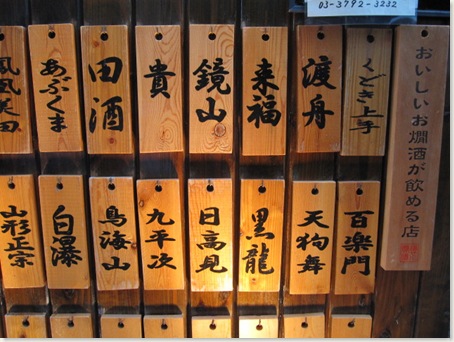 03-3792-3232
おいしいお燗酒が飲める店
くどき上手
渡舟
来福
鏡山
貴
田酒
あぶくま
鳳凰美田
百楽門
天狗舞
黒龍
日高見
九平次
鳥海山
白瀑
山形正宗